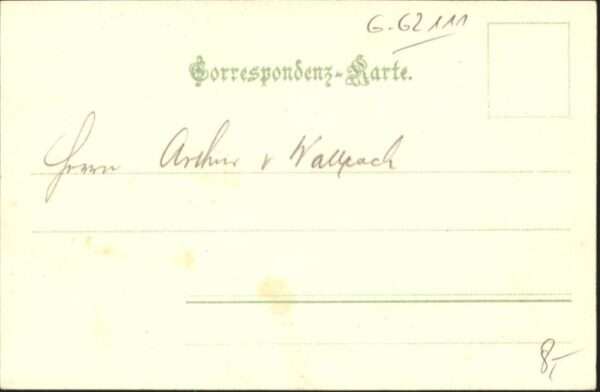 G. 62 111
Correspondenz-Karte.
Herrn Arthur v Wallpach
8,-